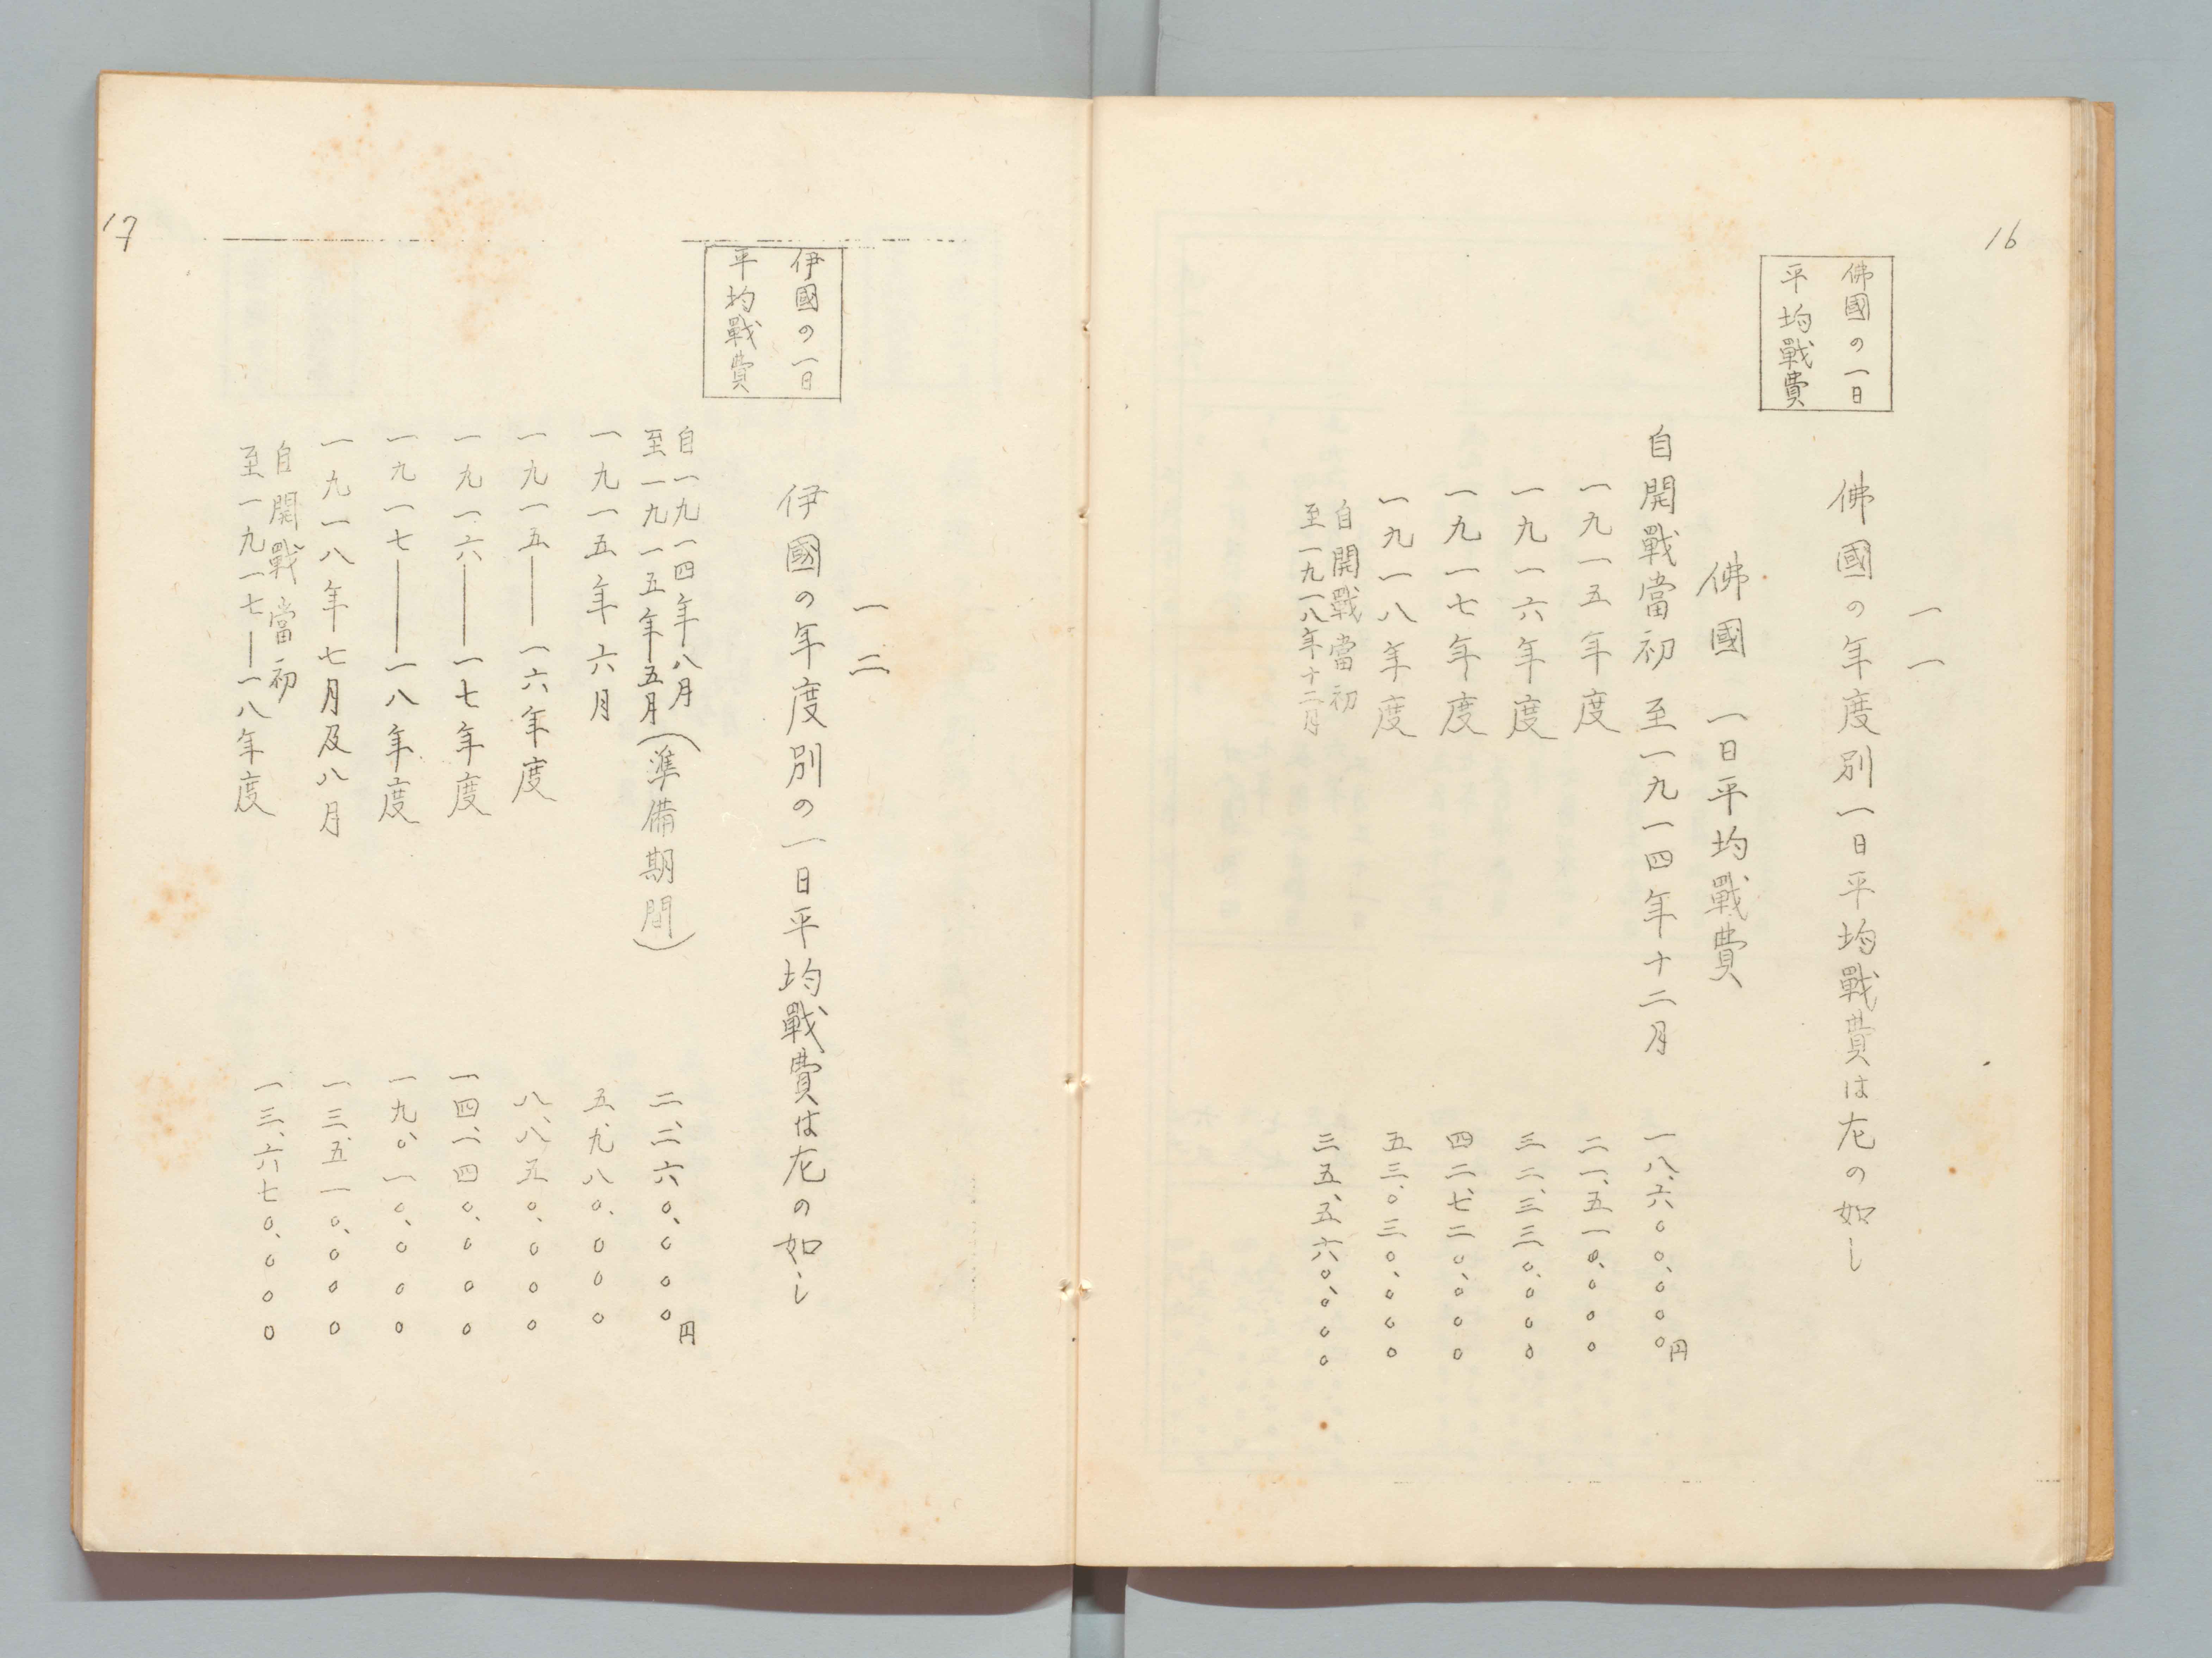 16
佛國の一日
平均戰費
一一
佛國の年度別一日平均戰費は左の如し
佛國 一日平均戰費
自開戰當初 至一九一四年十二月 一八、六〇〇、〇〇〇円
一九一五年度 二一、五一〇、〇〇〇
一九一六年度 三二、三三〇、〇〇〇
一九一七年度 四二、七二〇、〇〇〇
一九一八年度 五三、〇三〇、〇〇〇
自開戰當初
至一九一八年十二月 三五、五六〇、〇〇〇
17
伊國の一日
平均戰費
一二
伊國の年度別の一日平均戰費は左の如し
自一九一四年八月
至一九一五年五月(準備期間) 二、二六〇、〇〇〇円
一九一五年六月 五、九八〇、〇〇〇
一九一五——一六年度 八、八五〇、〇〇〇
一九一六——一七年度 一四、一四〇、〇〇〇
一九一七——一八年度 一九、〇一〇、〇〇〇
一九一八年七月及八月 一三、五一〇、〇〇〇
自開戰當初
至一九一七—一八年度 一三、六七〇、〇〇〇